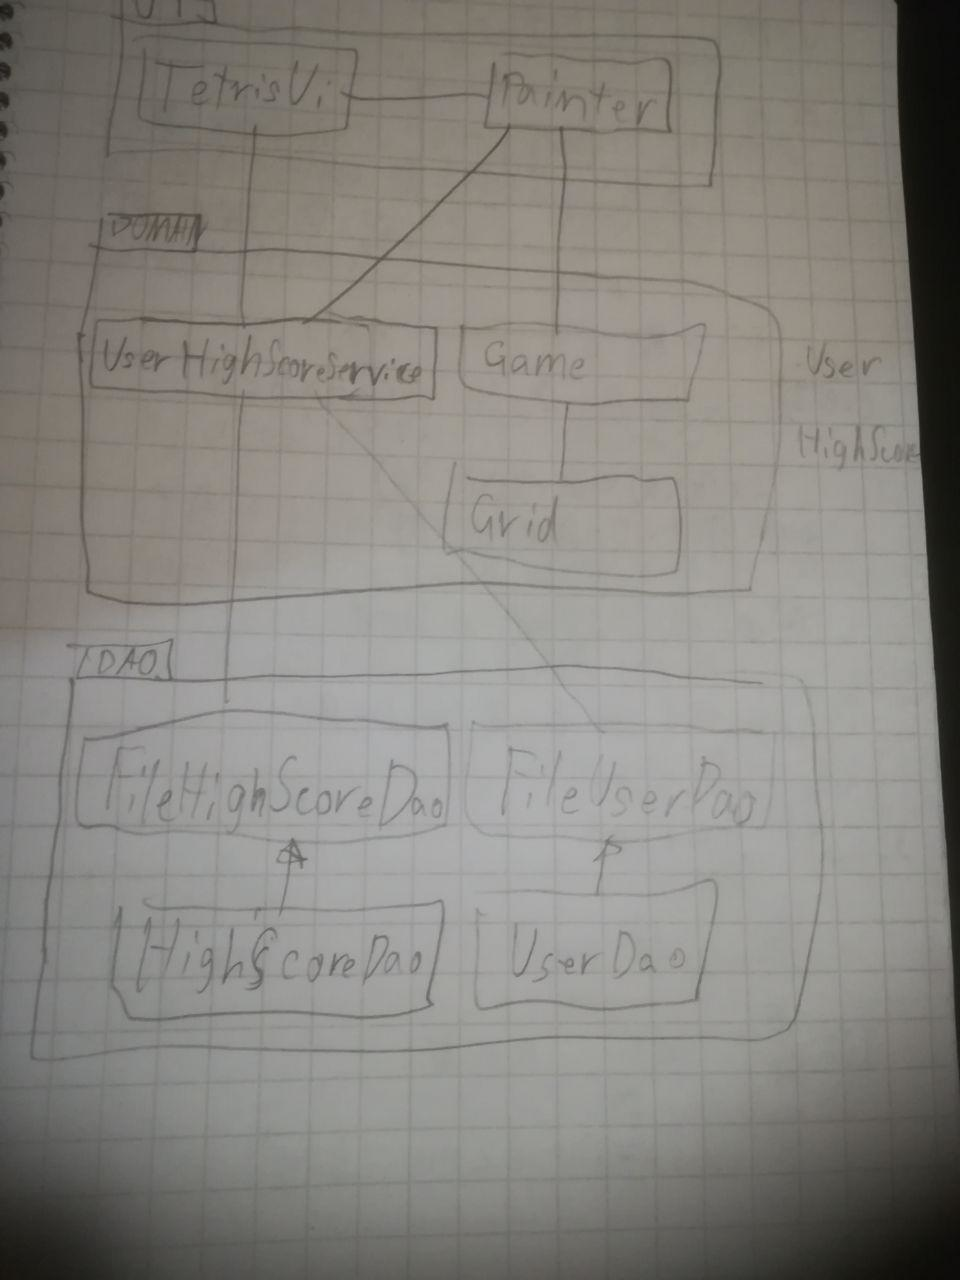 UI
TetrisUi
Painter
DOMAIN
UserHighScoreService
Game
User
HighScore
Grid
DAO
FileHighScoreDao
FileUserDao
HighScoreDao
UserDao